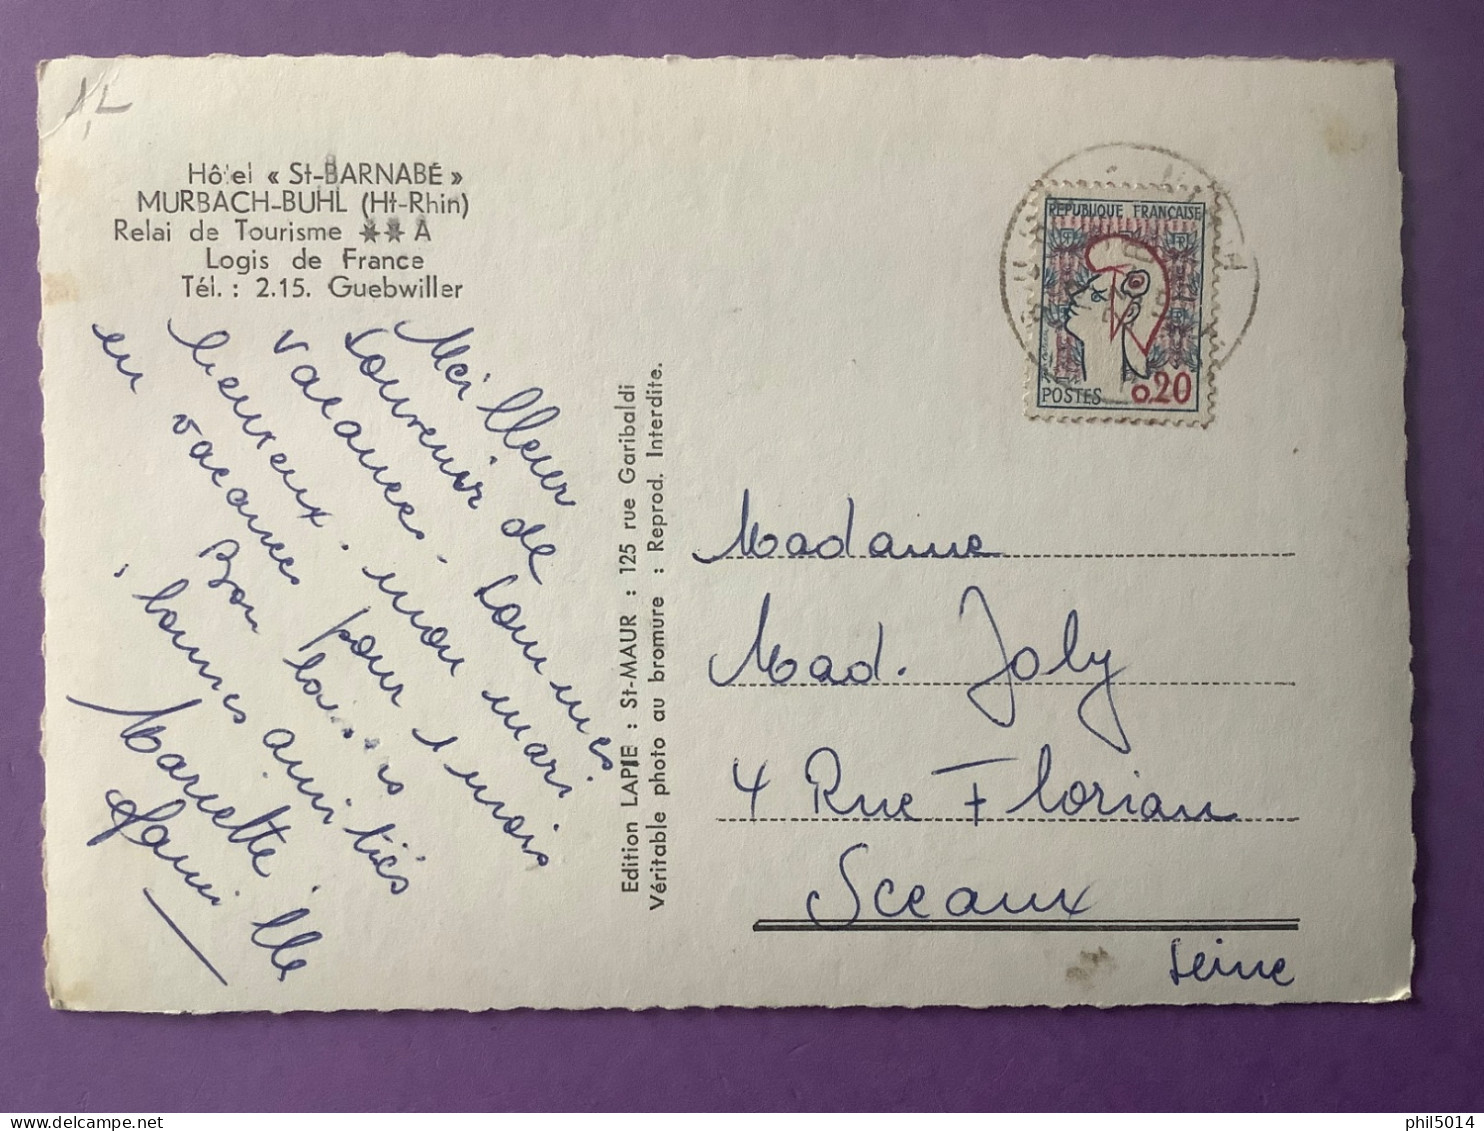 Hôtel « St-BARNABÉ »
MURBACH-BUHL (Ht-Rhin)
Relai de Tourisme ** A
Logis de France
Tél. : 2.15. Guebwiller
Meilleur
souvenir de
vacances. Sommes
heureux. mon mari
en vacances pour 1 mois
Bon loisirs
bonnes amitiés
Mariette.
famille
Edition LAPIE : St-MAUR : 125 rue Garibaldi
Véritable photo au bromure : Reprod. Interdite.
REPUBLIQUE FRANÇAISE
POSTES 0,20
Madame
Mad. Joly
4 Rue Florian
Sceaux
Seine
phil5014